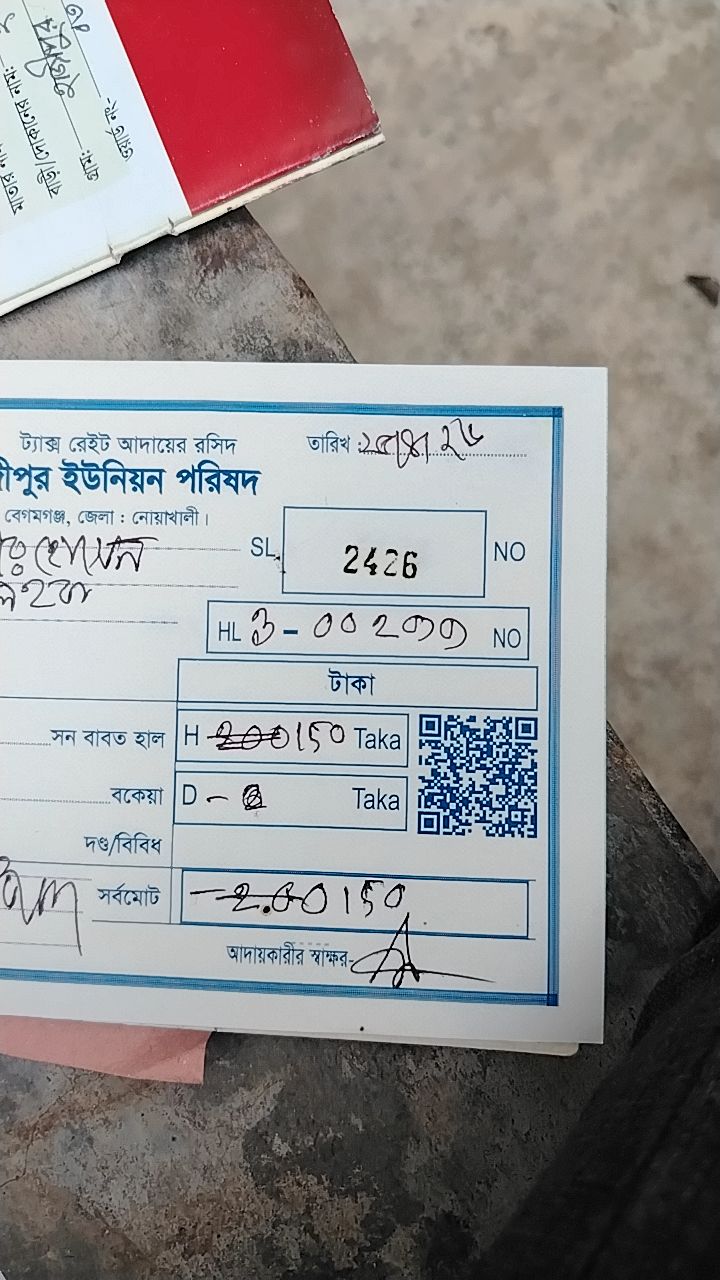 বাড়ী/দোকানের নাম:
গ্রাম:
ওয়ার্ড নং-
ট্যাক্স রেইট আদায়ের রসিদ
তারিখ :
ীপুর ইউনিয়ন পরিষদ
বেগমগঞ্জ, জেলা : নোয়াখালী।
হোসেন
SL. 2426 NO
HL 3-00299 NO
টাকা
সন বাবত হাল H 200 150 Taka
বকেয়া D - Taka
দণ্ড/বিবিধ
সর্বমোট 200 150
আদায়কারীর স্বাক্ষর-